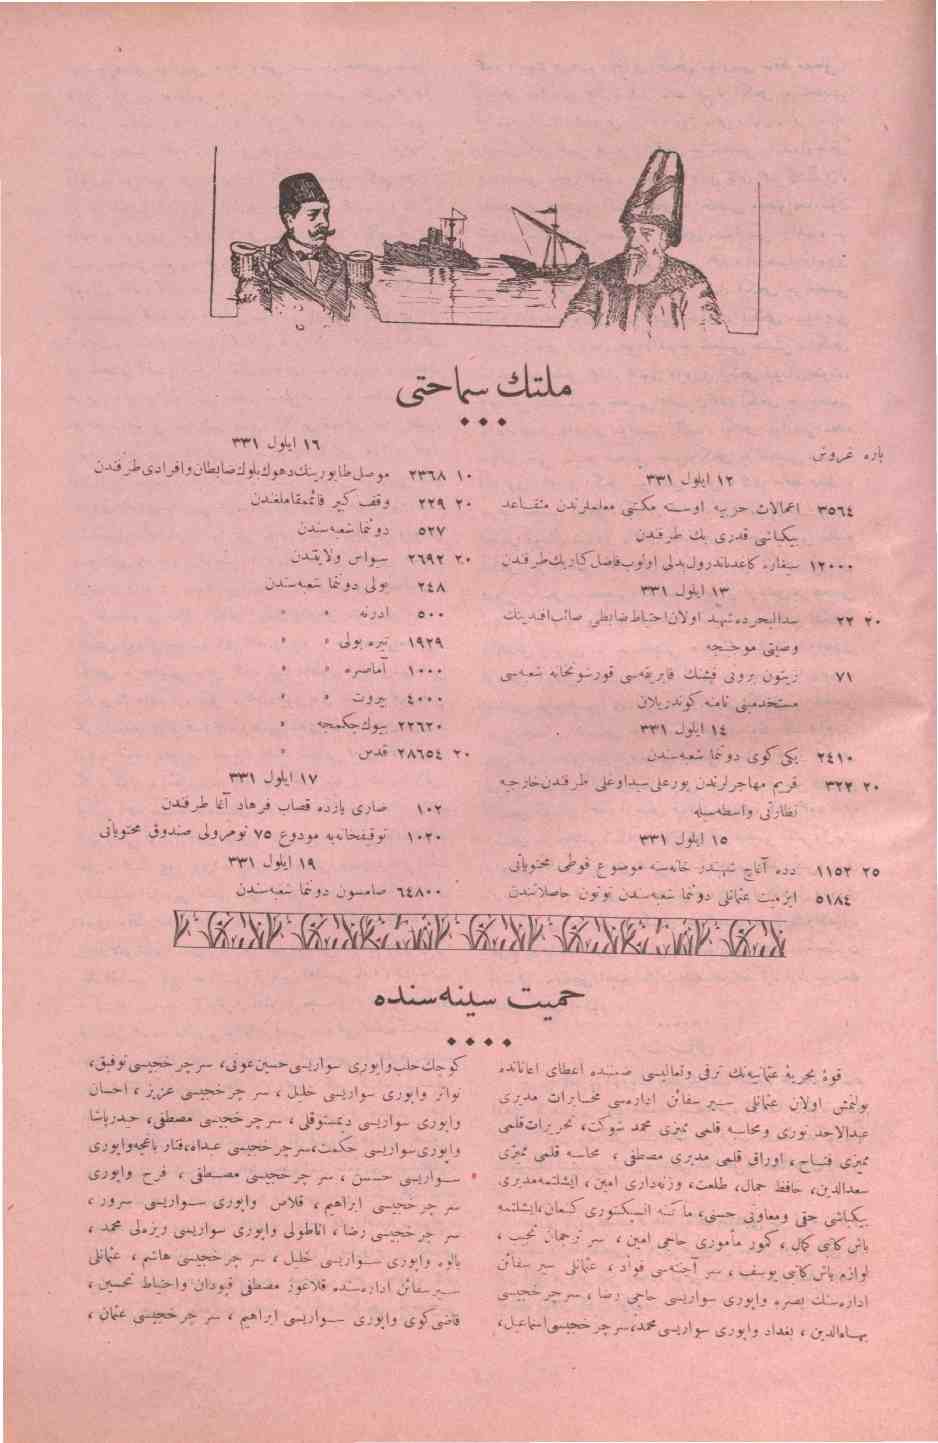 ملتك سماحتى
پاره غروش
١٢ ايلول ٣٣١
٣٥٦٤ اعمالات حربيه اوسته مكتبى معلملرندن متقاعد
بيكباشى قدرى بك طرفندن
١٢٠٠٠ سيغاره كاغدباندرول بدلى اولوب فاضل كبار بك طرفندن
١٣ ايلول ٣٣١
٢٠ ٢٢ سدالبحرده شهيد اولان احتياط ضابطى صائب افندينك
وصيتى موجبنجه
٧١ زيتون برونى فشنك فابريقه‌سى قورشونخانه شعبه‌سى
مستخدمينى نامنه كوندريلان
١٤ ايلول ٣٣١
٢٤١٠ يكى كوى دوننما شعبه‌سندن
٢٠ ٣٢٢ قريم مهاجرلرندن يورعلى سيداوغلى طرفندن خارجيه
نظارتى واسطه‌سيله
١٥ ايلول ٣٣١
٢٥ ١١٥٢ دده آغاج شهبندر خانه‌سنه موضوع قوطى محتوياتى
٥١٨٤ ازميت عثمانلى دوننما شعبه‌سندن توتون حاصلاتندن
١٦ ايلول ٣٣١
١٠ ٢٣٦٨ موصل طابورينك دهوك بلوك ضابطان و افرادى طرفندن
٢٠ ٢٢٩ وقف كبير قائممقاملغندن
٥٢٧ دوننما شعبه‌سندن
٢٠ ٢٦٩٢ سيواس ولايتندن
٢٤٨ بولى دوننما شعبه‌سندن
٥٠٠ ادرنه » »
١٩٢٩ تيره بولى » »
١٠٠٠ آماصره » »
٤٠٠٠ بيروت » »
٢٢٦٢٠ بيوك چكمجه »
٢٠ ٢٨٦٥٤ قدس »
١٧ ايلول ٣٣١
١٠٢ صارى يارده قصاب فرهاد آغا طرفندن
١٠٢٠ توقيفخانه‌يه مودوع ٧٥ نومرولى صندوق محتوياتى
١٩ ايلول ٣٣١
٦٤٨٠٠ صامسون دوننما شعبه‌سندن
حميت سينه‌سنده
قوۀ بحريۀ عثمانيه‌نك ترقى وتعاليسى ضمننده اعطاى اعاناتده
بولنمش اولان عثمانلى سير سفائن اداره‌سى مخابرات مديرى
عبدالاحد نورى ومحاسبه قلمى مميزى محمد شوكت، تحريرات قلمى
مميزى فتاح، اوراق قلمى مديرى مصطفى، محاسبه قلمى مميزى
سعدالدين، حافظ جمال، طلعت، وزنه‌دارى امين، ايشلتمه مديرى
بيكباشى حقى ومعاونى حسنى، ماكنه انسپكتورى كنعان، ايشلتمه
باش كاتبى كمال، كمور مأمورى حاجى امين، سر ترجمان نجيب،
لوازم باش كاتبى يوسف، سر آجنته‌سى فواد، عثمانلى سير سفائن
اداره‌سنك بصره واپورى سواريسى حاجى رضا، سرچرخجيسى
بهاءالدين، بغداد واپورى سواريسى محمد، سرچرخجيسى اسماعيل،
كوچك حلب واپورى سواريسى حسين عونى، سر چرخجيسى توفيق،
نواتر واپورى سواريسى خليل، سر چرخجيسى عزيز، احسان
واپورى سواريسى ديمستوقلى، سرچرخجيسى مصطفى، حيدرپاشا
واپورى سواريسى حكمت، سرچرخجيسى عبدالله، فنار باغچه واپورى
سواريسى حسن، سر چرخجيسى مصطفى، فرح واپورى
سرچرخجيسى ابراهيم، قلاس واپورى سواريسى سرور،
سر چرخجيسى رضا، اناطولى واپورى سواريسى ويزه‌لى محمد،
يالوه واپورى سواريسى خليل، سر چرخجيسى هاشم، عثمانلى
سير سفائن اداره‌سنده قلاغوز مصطفى قپودان واحتياط تحسين،
قاضى كوى واپورى سواريسى ابراهيم، سر چرخجيسى عثمان،